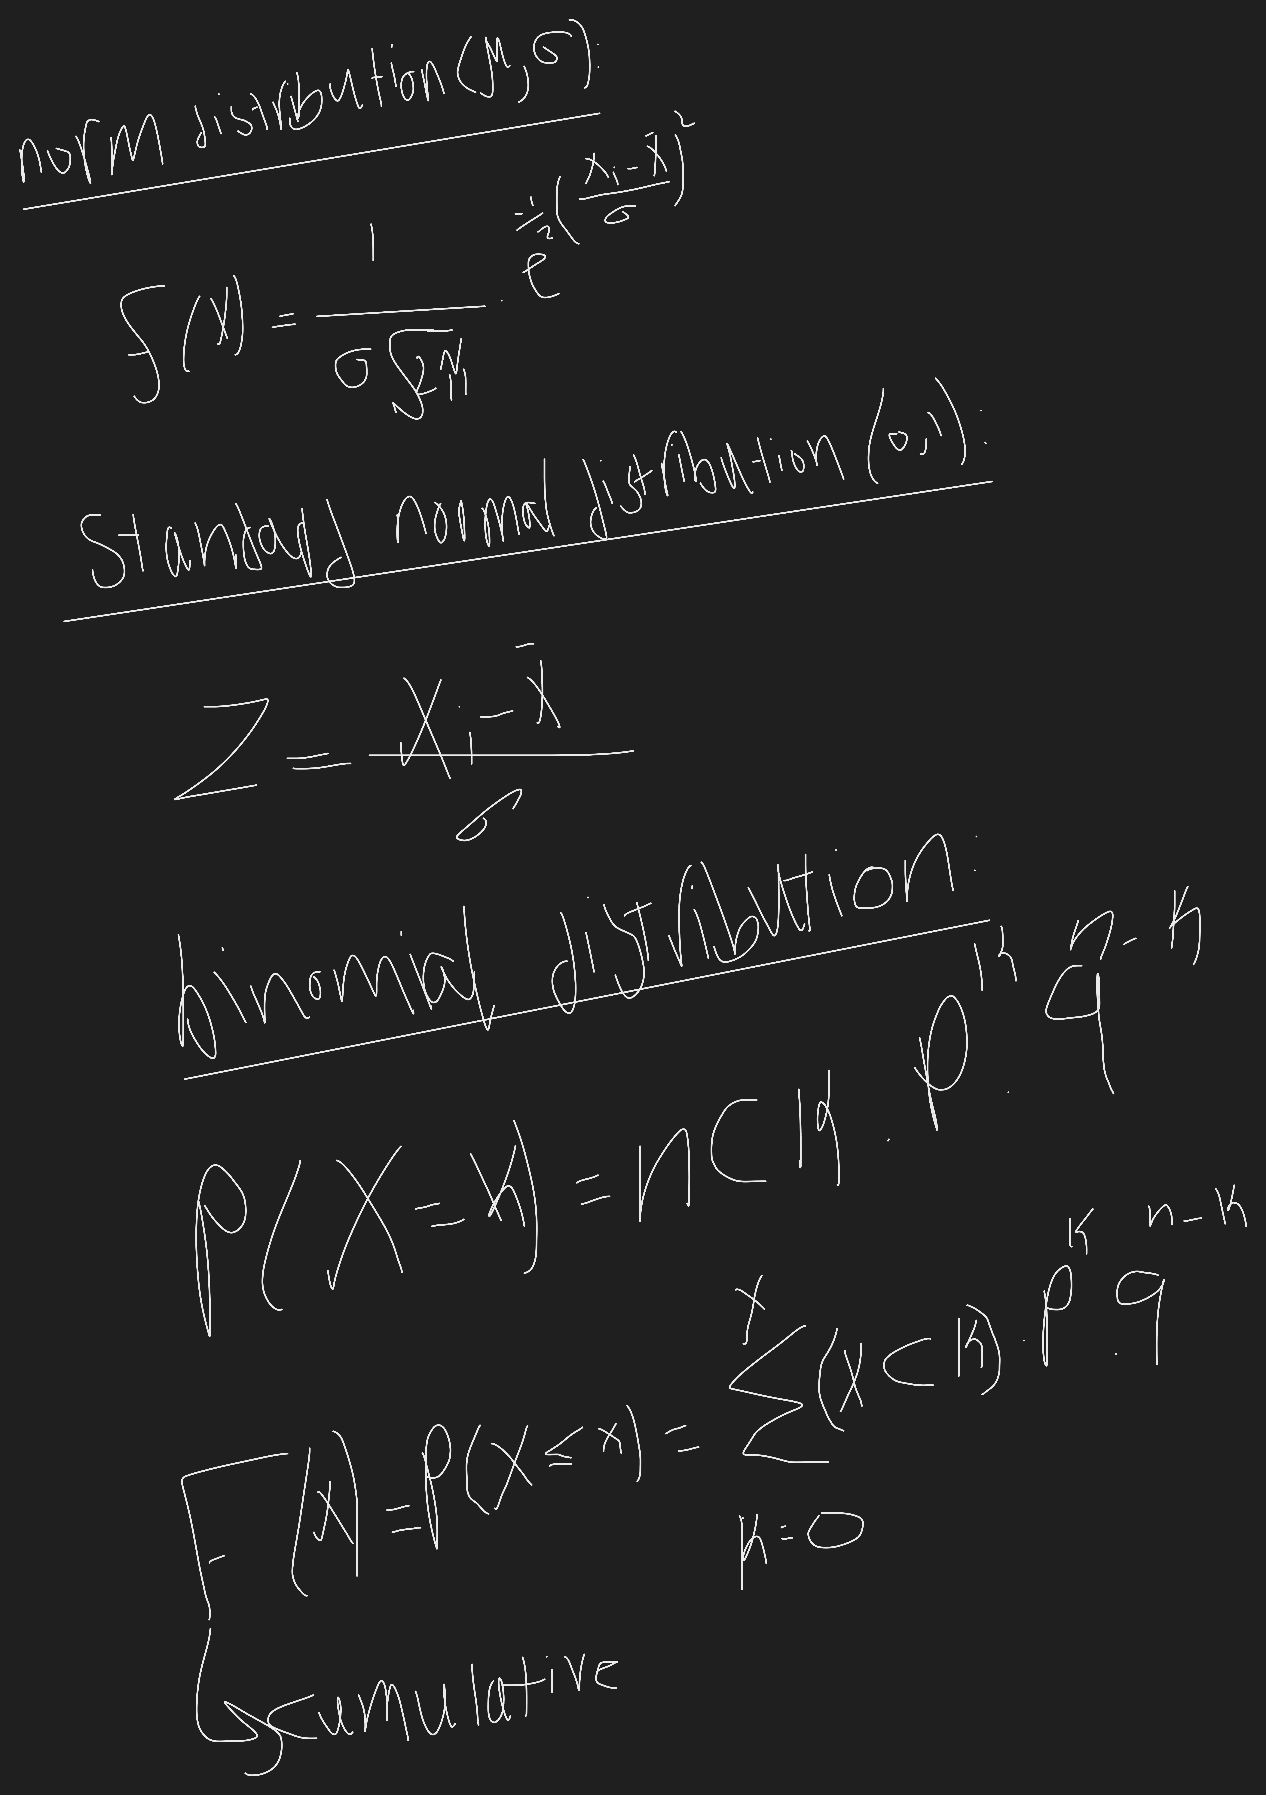 norm distribution(μ,σ):
f(x) = 1/(σ√2π) · e^(-1/2((xᵢ-x̄)/σ)²)
Standard normal distribution (0,1):
Z = (xᵢ-x̄)/σ
binomial distribution:
P(X=k) = nCk · p^k · q^(n-k)
F(x) = P(X≤x) = Σ_(k=0)^x (xCk) · p^k · q^(n-k)
cumulative